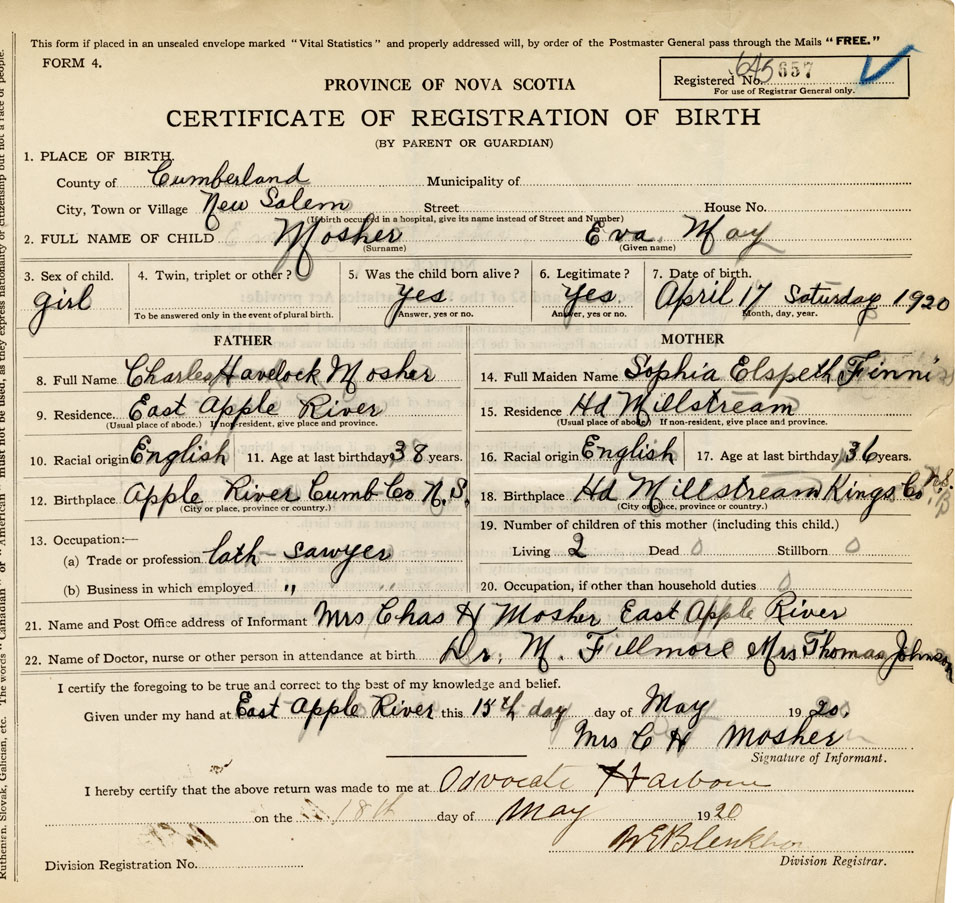 This form if placed in an unsealed envelope marked "Vital Statistics" and properly addressed will, by order of the Postmaster General pass through the Mails "FREE."
FORM 4.
Registered No. 657
For use of Registrar General only.
PROVINCE OF NOVA SCOTIA
CERTIFICATE OF REGISTRATION OF BIRTH
(BY PARENT OR GUARDIAN)
1. PLACE OF BIRTH.
County of Cumberland Municipality of
City, Town or Village New Salem Street House No.
(If birth occured in a hospital, give its name instead of Street and Number)
2. FULL NAME OF CHILD Mosher Eva May
(Surname) (Given name)
3. Sex of child. 4. Twin, triplet or other? 5. Was the child born alive? 6. Legitimate? 7. Date of birth.
girl Yes Yes April 17 Saturday 1920
To be answered only in the event of plural birth. Answer, yes or no. Answer, yes or no. Month, day, year.
FATHER
8. Full Name Charles Havelock Mosher
9. Residence. East Apple River
(Usual place of abode.) If non-resident, give place and province.
10. Racial origin English 11. Age at last birthday 38 years.
12. Birthplace Apple River Cumb Co N.S.
(City or place, province or country.)
13. Occupation:—
(a) Trade or profession lath - sawyer
(b) Business in which employed " "
MOTHER
14. Full Maiden Name Sophia Elspeth Finnis
15. Residence Hd Millstream
(Usual place of abode) If non-resident, give place and province.
16. Racial origin English 17. Age at last birthday 36 years.
18. Birthplace Hd Millstream Kings Co N.B.
(City or place, province or country.)
19. Number of children of this mother (including this child.)
Living 2 Dead 0 Stillborn 0
20. Occupation, if other than household duties 0
21. Name and Post Office address of Informant Mrs Chas H Mosher East Apple River
22. Name of Doctor, nurse or other person in attendance at birth Dr. M. Fillmore Mrs Thomas Johnson
I certify the foregoing to be true and correct to the best of my knowledge and belief.
Given under my hand at East Apple River this 15th day day of May 1920.
Mrs C H Mosher
Signature of Informant.
I hereby certify that the above return was made to me at Advocate Harbour
on the 18th day of May 1920
W E Blenkhorn
Division Registration No. Division Registrar.
Ruthenian, Slovak, Galician, etc. The words "Canadian" or "American" must not be used, as they express nationality or citizenship but not a race of people.